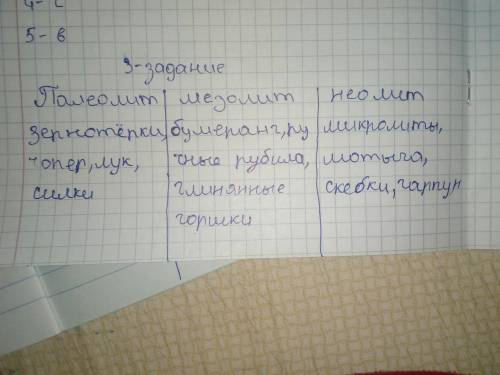 4- с
5- в
3-задание
Палеолит мезолит неолит
зернотёрки, бумеранг, ру микролиты,
чопер, лук, чные рубила, мотыга,
силки глинянные скебки, гарпун
горшки